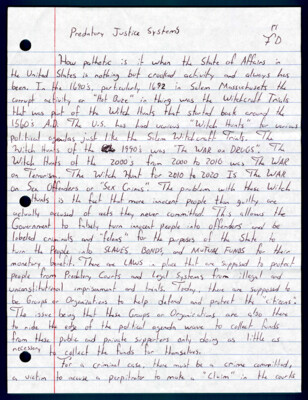 Predatory Justice Systems
How pathetic is it when the State of Affairs in
the United States is nothing but crooked activity and always has
been. In the 1690's, particularly 1692 in Salem Massachusetts the
corrupt activity or "Hot Buzz" in thing was the Witchcraft Trials
that was part of the Witch Hunts that started back around the
1560's A.D. The U.S. has had various "Witch Hunts" for various
political agendas just like the Salem Witchcraft Trials. The
"Witch Hunts of the 1990's was "The WAR on DRUGS". The
Witch Hunts of the 2000's from 2000 to 2010 was The WAR
on Terrorism. The Witch Hunt for 2010 to 2020 Is The WAR
on Sex Offenders or "Sex Crimes". The problem with these Witch
Hunts is the fact that more innocent people than guilty are
actually accused of acts they never committed. This allows the
Government to falsely turn innocent people into offenders and be
labeled criminals and "felons" for the purposes of the State to
turn the People into SLAVES, BONDS, and MUTUAL FUNDS for their
monetary benefit. There are LAWS in place that are supposed to protect
people from Predatory Courts and Legal Systems from illegal and
unconstitutional imprisonment and travels. Today, there are supposed to
be Groups or Organizations to help defend and protect the "citizens".
The issue being that these Groups or Organizations are also there
to ride the edge of the political agenda wave to collect funds
from these public and private supporters only doing as little as
necessary to collect the funds for themselves.
For a criminal case, there must be a crime committed,
a victim to accuse a perpetrator to make a "Claim" in the courts